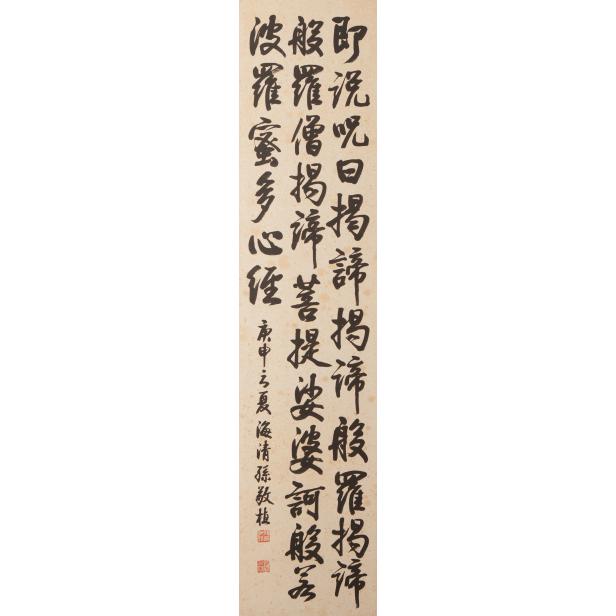 即說呪曰揭諦揭諦般羅揭諦
般羅僧揭諦菩提娑婆訶般若
波羅蜜多心經
庚申之夏海清孫敬植